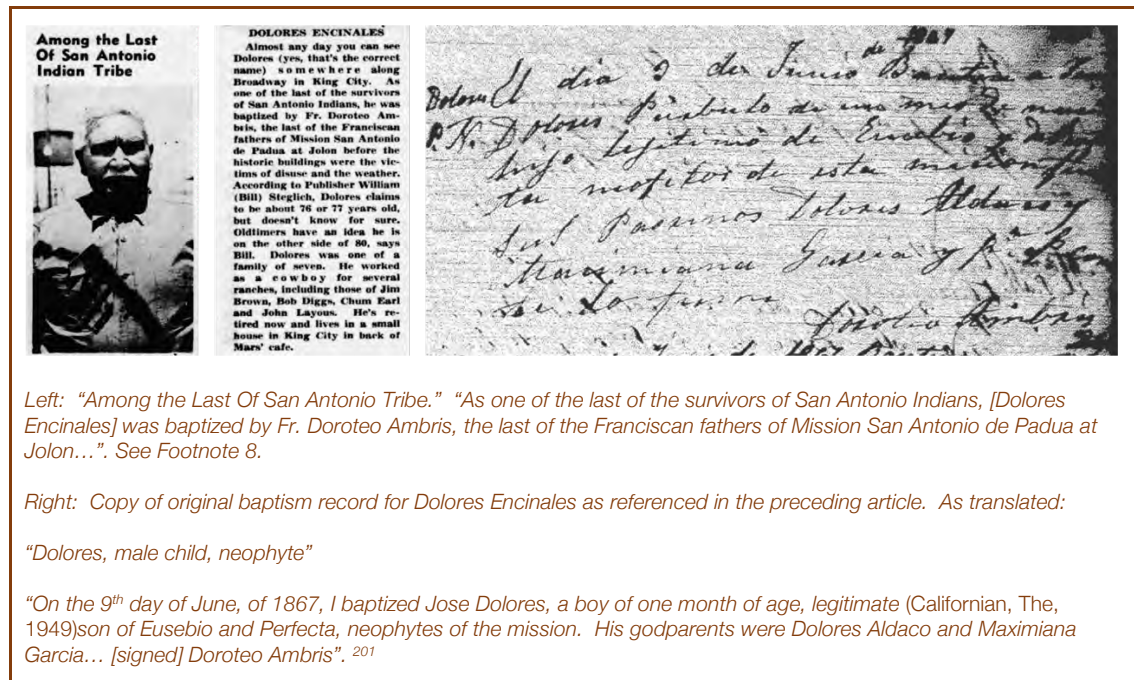 Among the Last
Of San Antonio
Indian Tribe
DOLORES ENCINALES
Almost any day you can see
Dolores (yes, that's the correct
name) somewhere along
Broadway in King City. As
one of the last of the survivors
of San Antonio Indians, he was
baptized by Fr. Doroteo Am-
bris, the last of the Franciscan
fathers of Mission San Antonio
de Padua at Jolon before the
historic buildings were the vic-
tims of disuse and the weather.
According to Publisher William
(Bill) Steglich, Dolores claims
to be about 76 or 77 years old,
but doesn't know for sure.
Oldtimers have an idea he is
on the other side of 80, says
Bill. Dolores was one of a
family of seven. He worked
as a cowboy for several
ranches, including those of Jim
Brown, Bob Diggs, Chum Earl
and John Layous. He's re-
tired now and lives in a small
house in King City in back of
Mars' cafe.
de 1867
El dia 9 de Junio
Dolores
P. N. Dolores Parbulo de un mes de
hijo legitimo de Eusebio
de esta mision
sus Padrinos Dolores Aldaco y
Maximiana Garcia y
Doroteo Ambris
Left: “Among the Last Of San Antonio Tribe.” “As one of the last of the survivors of San Antonio Indians, [Dolores
Encinales] was baptized by Fr. Doroteo Ambris, the last of the Franciscan fathers of Mission San Antonio de Padua at
Jolon…”. See Footnote 8.
Right: Copy of original baptism record for Dolores Encinales as referenced in the preceding article. As translated:
“Dolores, male child, neophyte”
“On the 9th day of June, of 1867, I baptized Jose Dolores, a boy of one month of age, legitimate (Californian, The,
1949)son of Eusebio and Perfecta, neophytes of the mission. His godparents were Dolores Aldaco and Maximiana
Garcia… [signed] Doroteo Ambris”. 201